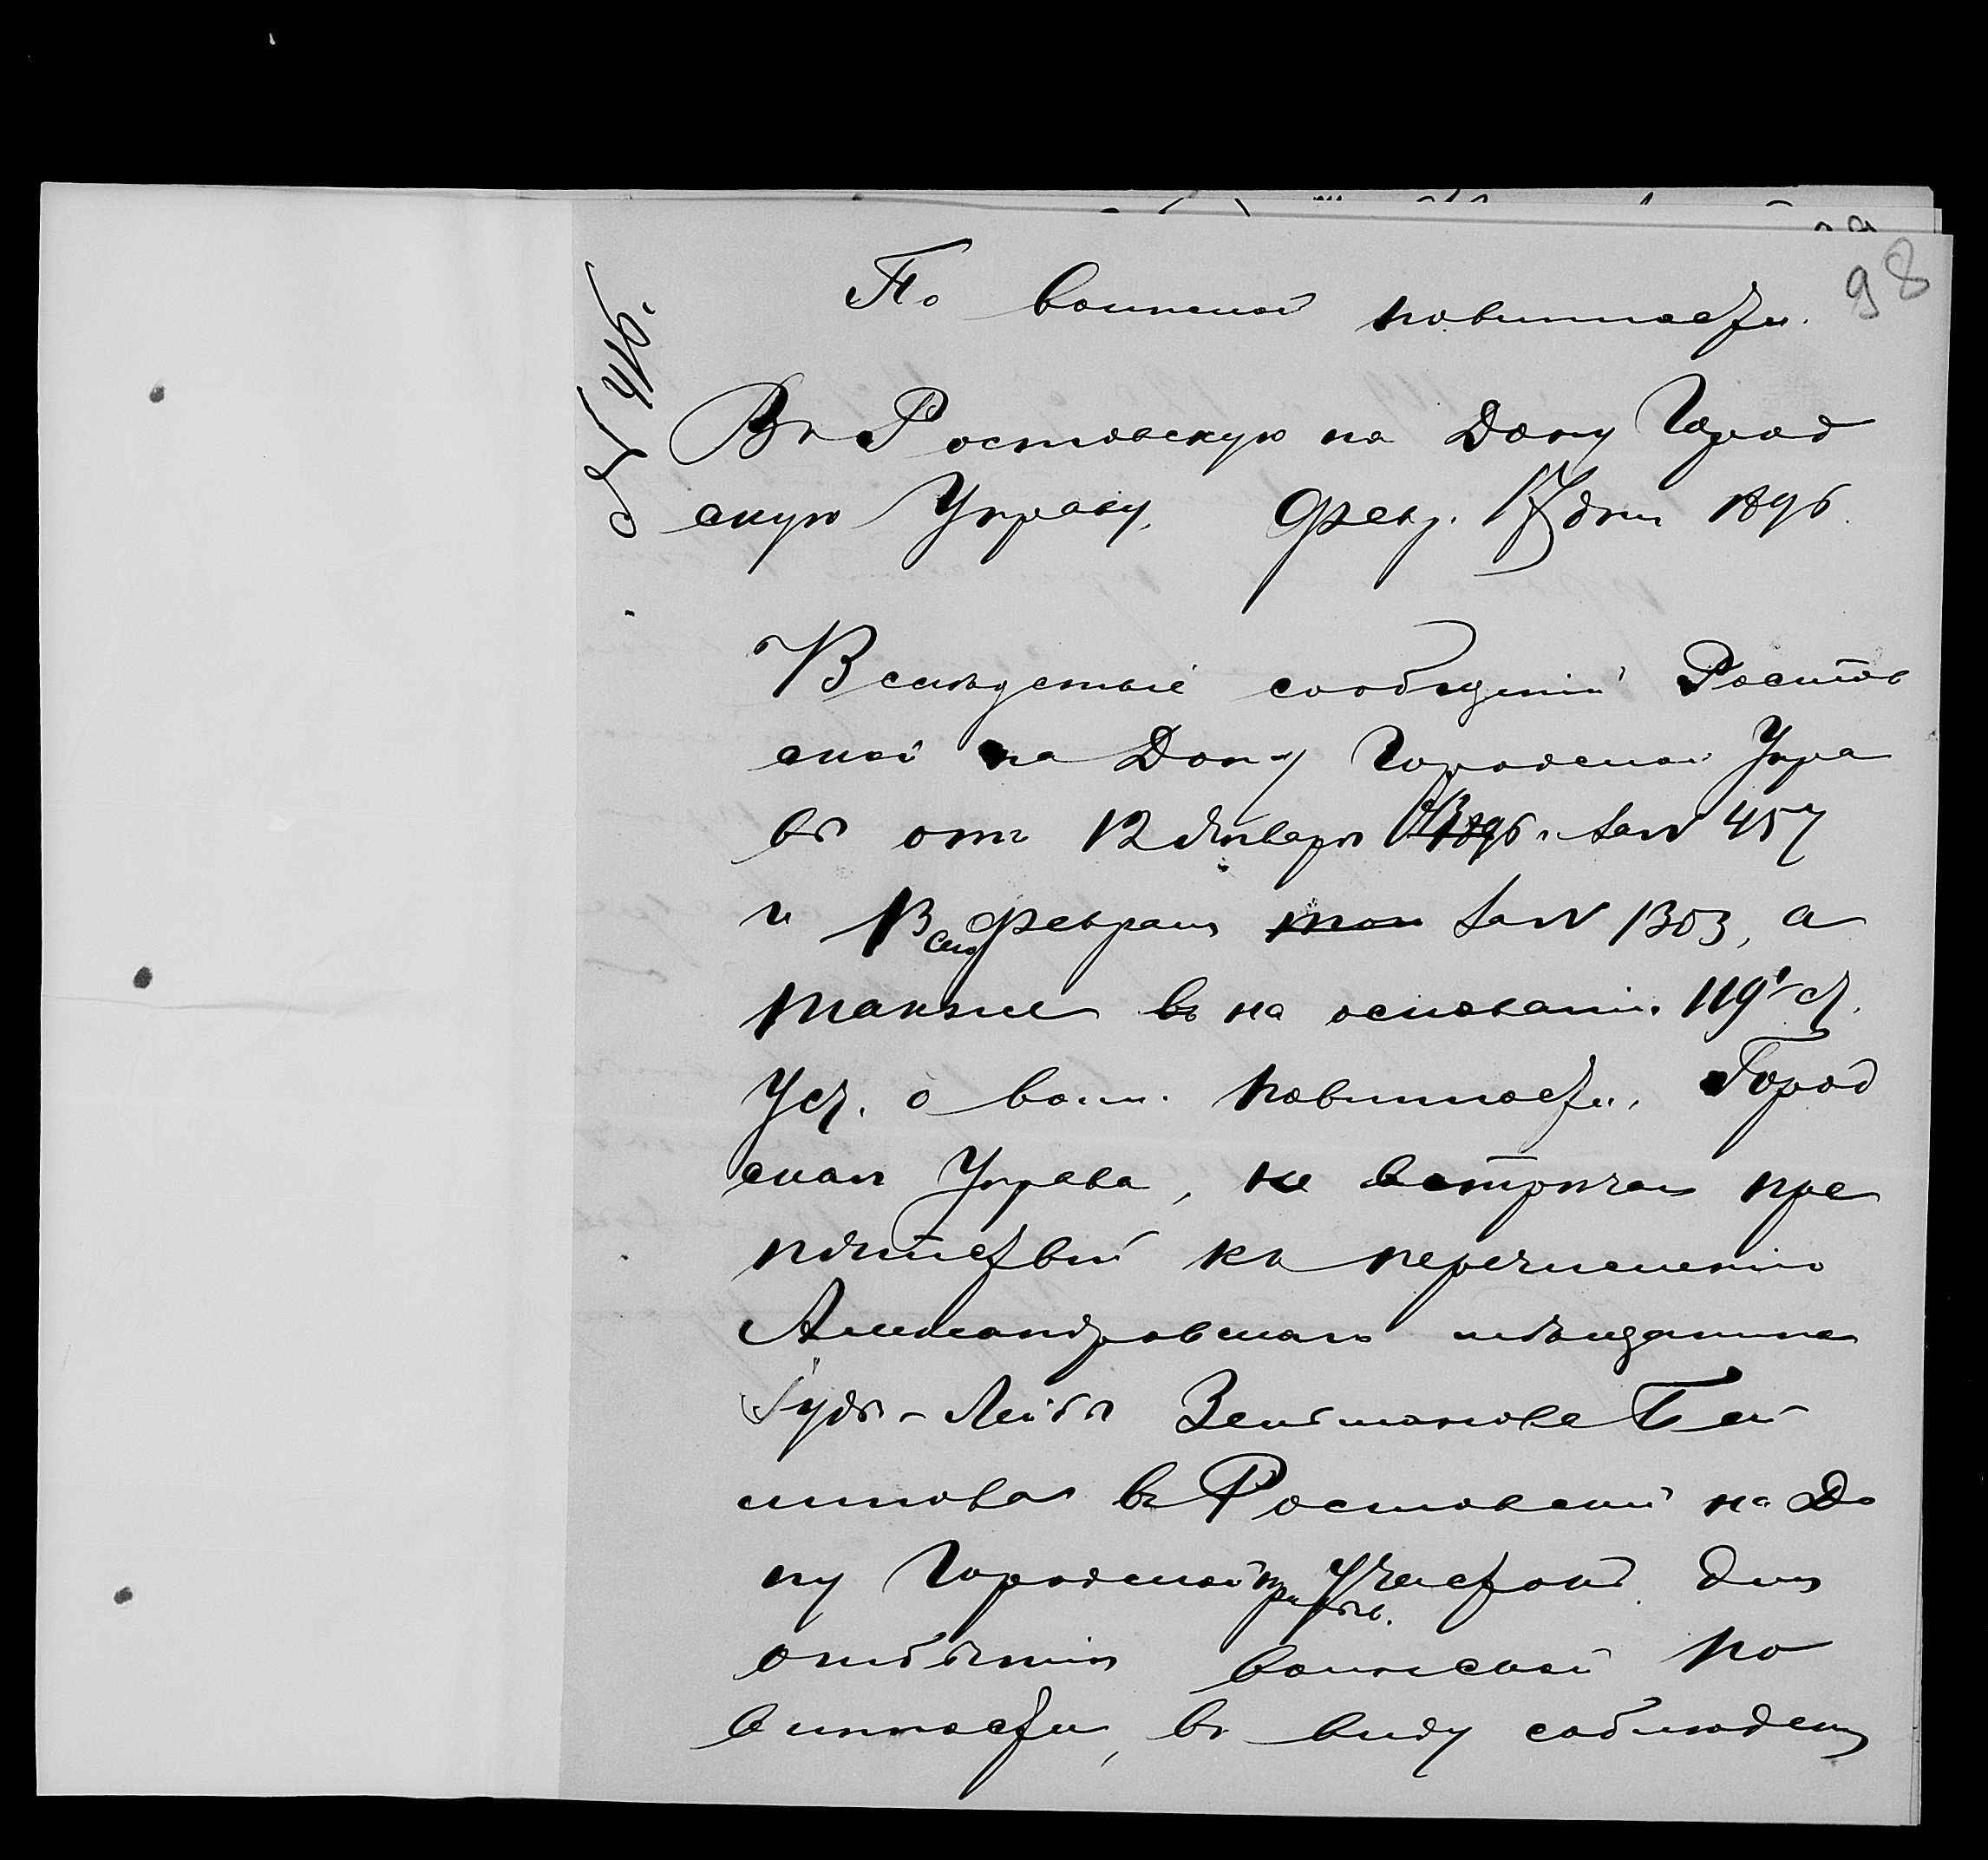 98
№ 416.
По воинской повинности.
Въ Ростовскую на Дону Город
скую Управу. Февр. 17 дня 1896.
Вслѣдствіе сообщеній Ростов
ской на Дону Городской Упра
вы отъ 12 Января 1896 за № 457
и 13 сего Февраля за № 1303, а
также въ на основаніи 119 ст.
Уст. о воин. повинности, Город
ская Управа, не встрѣчая пре
пятствій къ перечисленію
Александровскаго мѣщанина
Іуды-Лейбы Зельманова Бей
линова въ Ростовскій на До
ну Городской призывн. Участокъ для
отбытія воинской по
винности, въ виду соблюденія